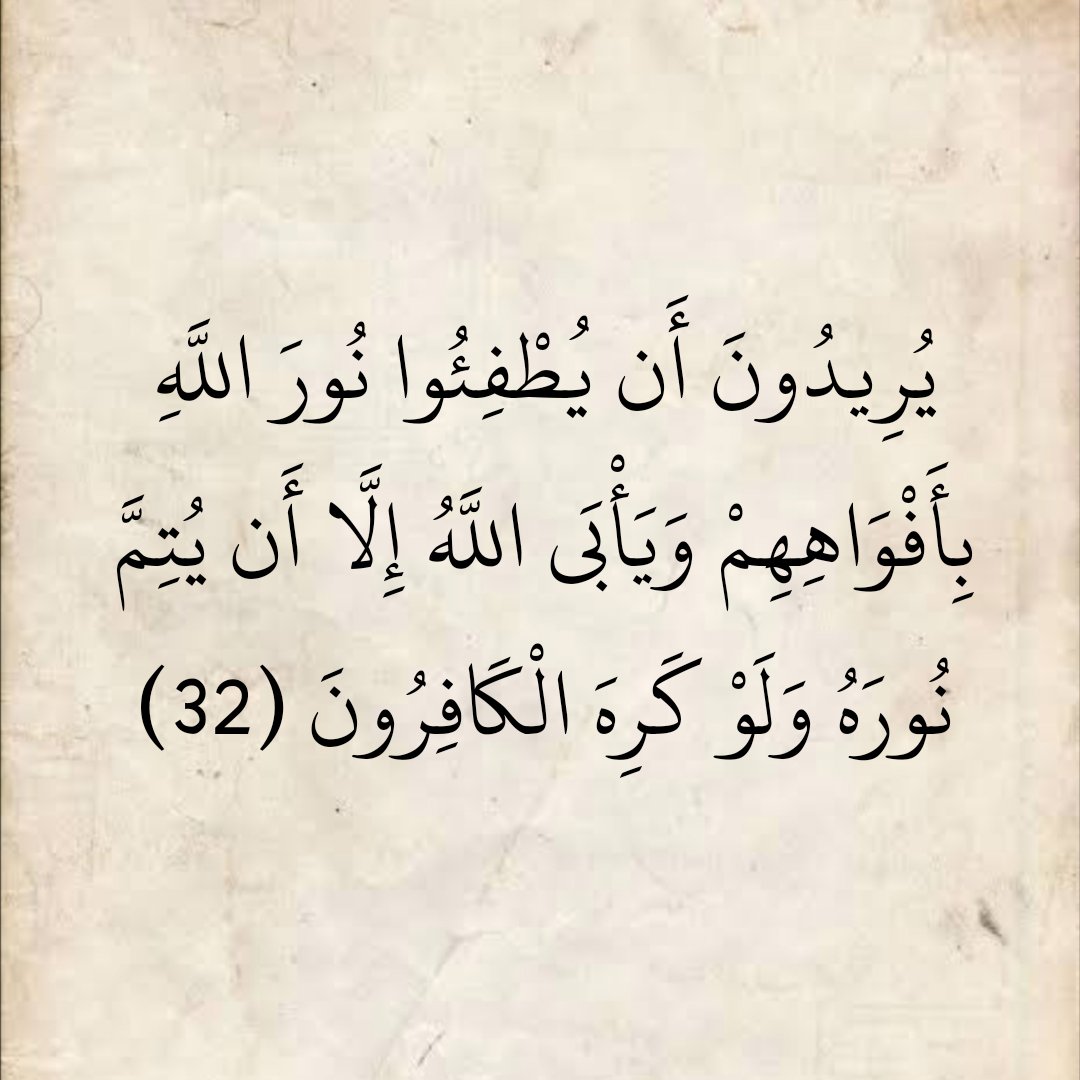 يُرِيدُونَ أَن يُطْفِئُوا نُورَ اللَّهِ
بِأَفْوَاهِهِمْ وَيَأْبَى اللَّهُ إِلَّا أَن يُتِمَّ
نُورَهُ وَلَوْ كَرِهَ الْكَافِرُونَ (32)